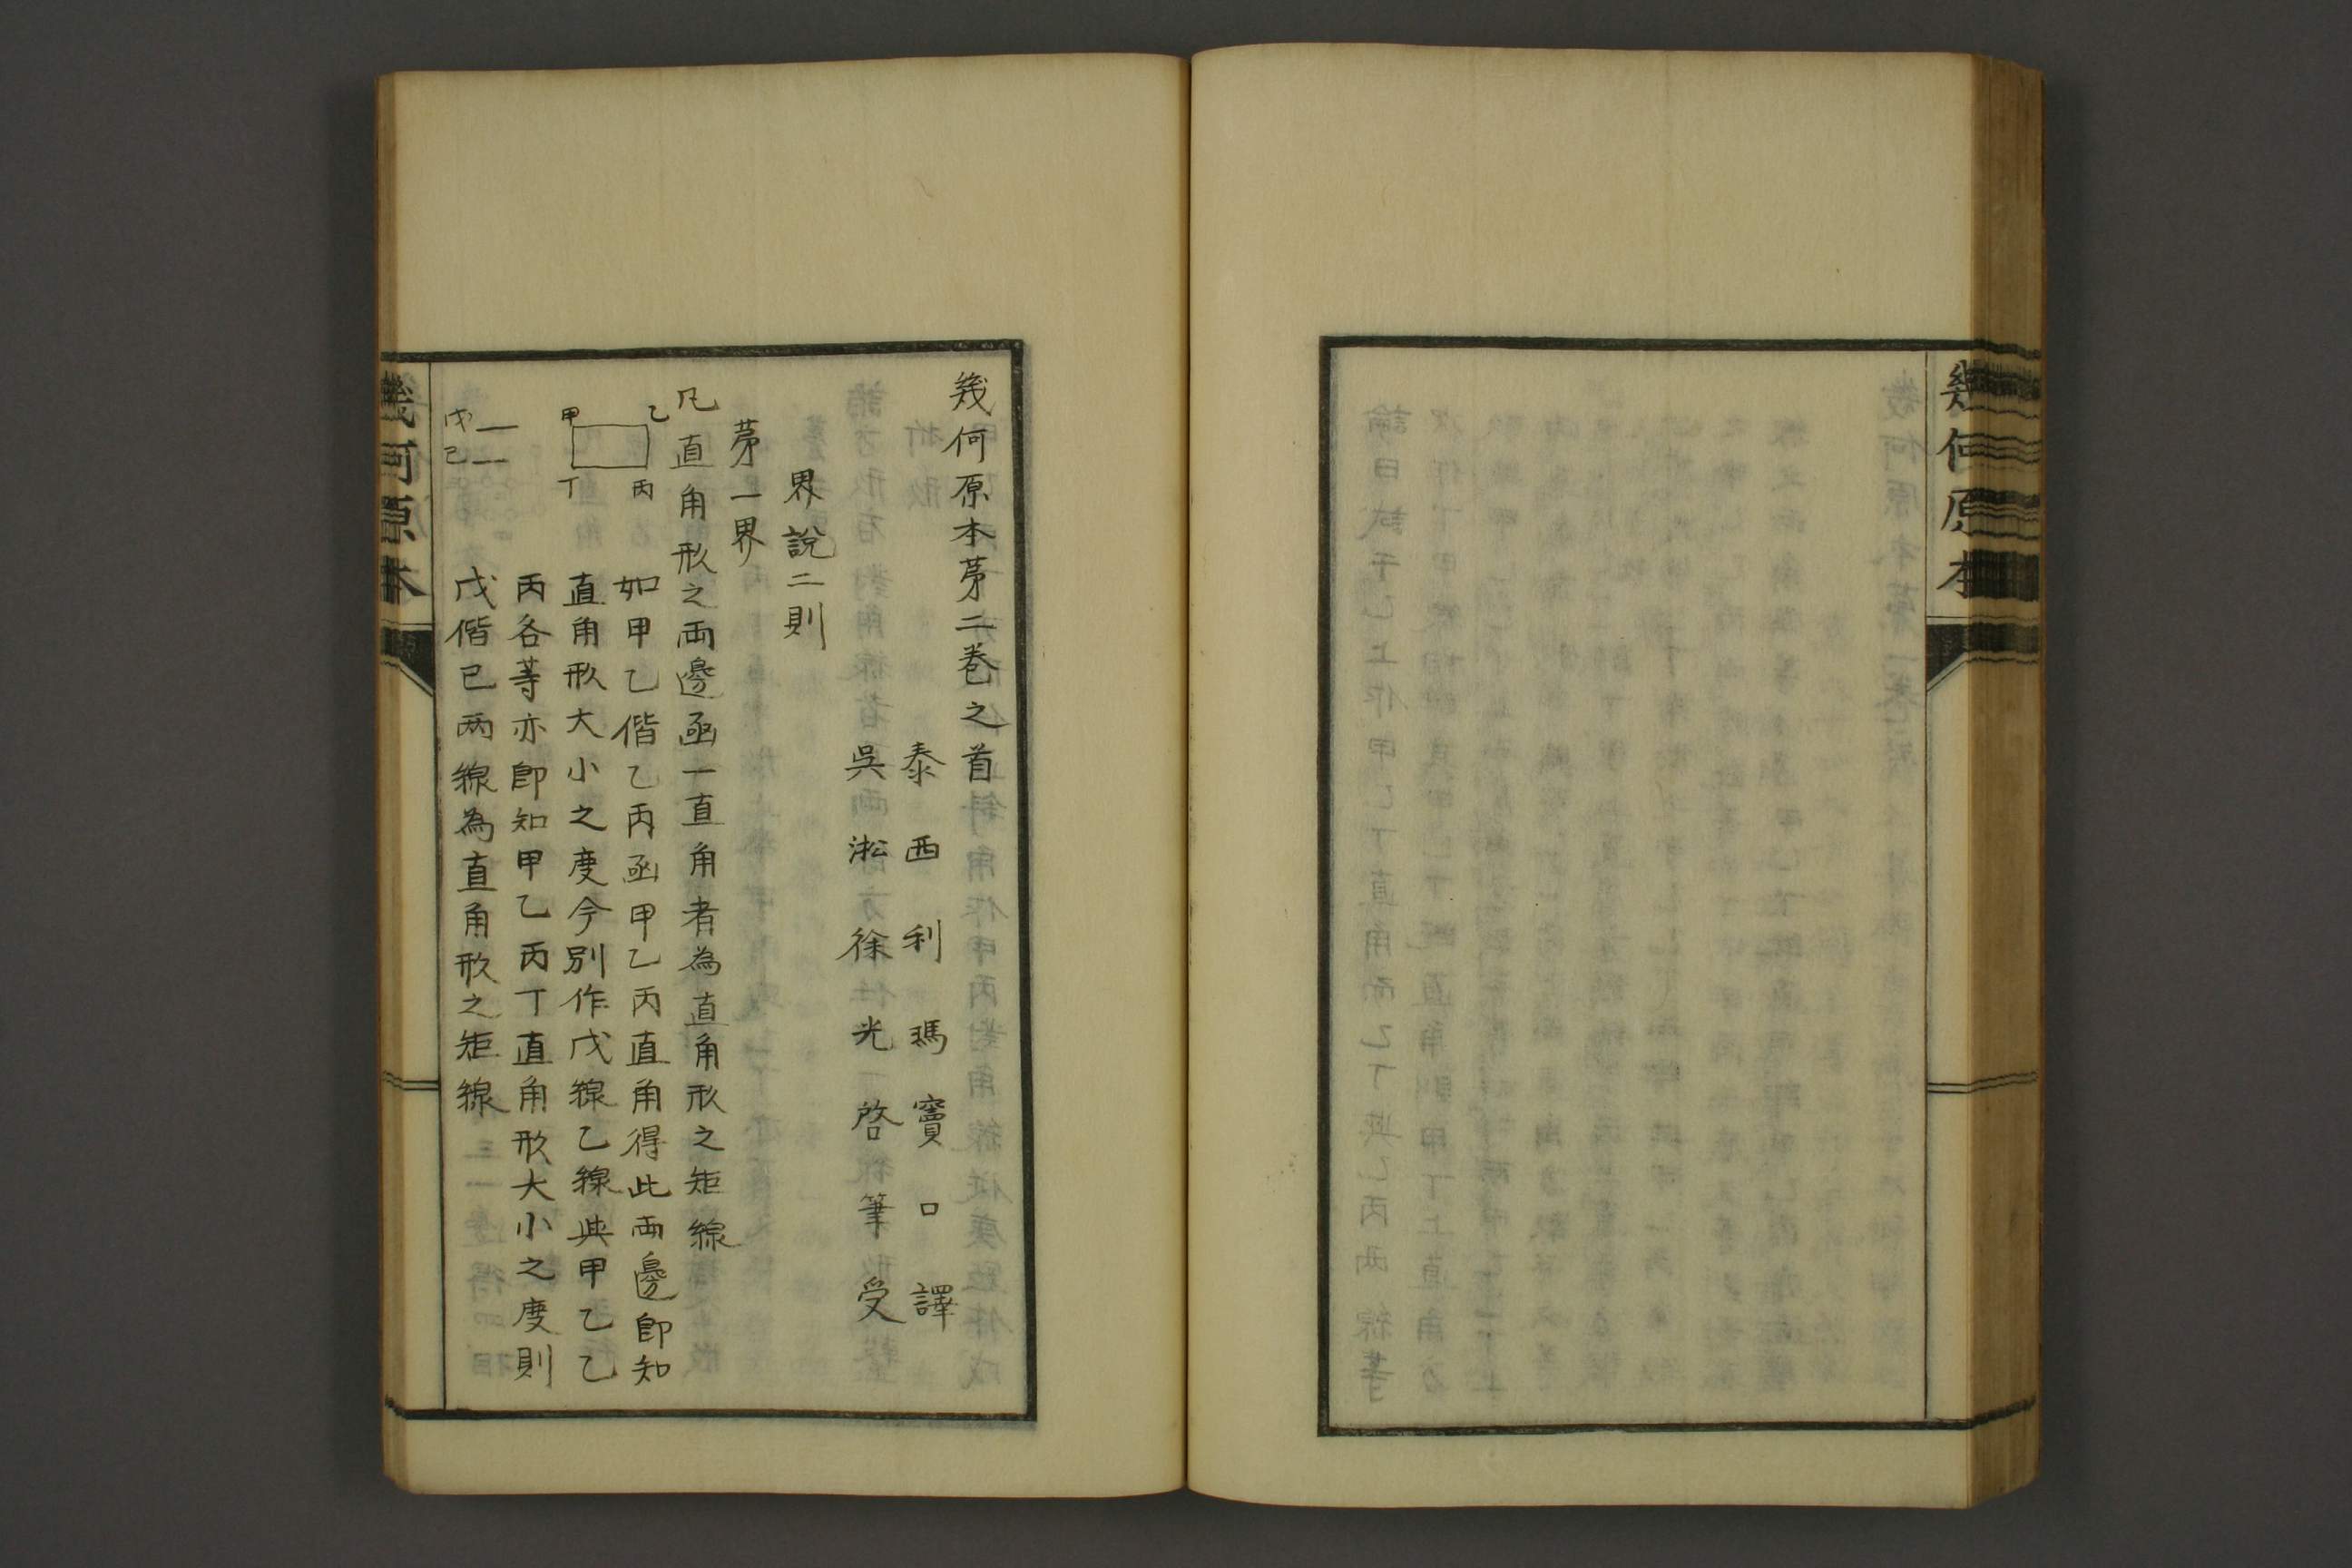 幾何原本
幾何原本苐二卷之首
泰西利瑪竇口譯
吳淞徐光啓筆受
界說二則
苐一界
凡直角形之兩邊函一直角者為直角形之矩線
乙
丙
甲
丁
如甲乙偕乙丙函甲乙丙直角得此兩邊即知
直角形大小之度今別作戊線己線與甲乙乙
丙各等亦即知甲乙丙丁直角形大小之度則
戊
己
戊偕己兩線為直角形之矩線
幾何原本